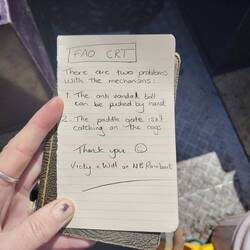 FAO CRT
There are two problems
with the mechanisms:
1. The anti vandal bolt
can be pushed by hand
2. The paddle gate isn't
catching on the cogs
Thank you
Vicky & Will on NB Rainbow